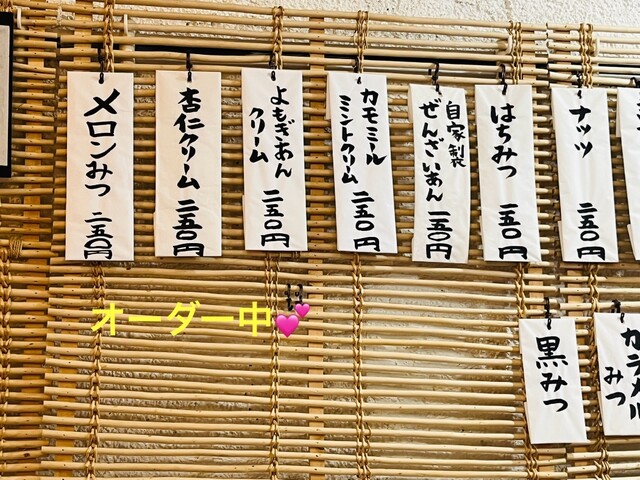 メロンみつ 二五〇円
杏仁クリーム 二五〇円
よもぎあん
クリーム 二五〇円
カモミール
ミントクリーム 二五〇円
自家製
ぜんざいあん 一五〇円
はちみつ 一五〇円
ナッツ 二五〇円
オーダー中💕
黒みつ
カラメル
みつ